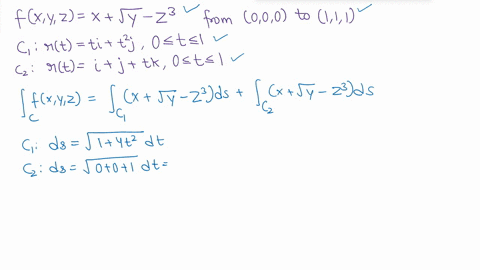 f(x,y,z) = x + √y - z³ ✓ from (0,0,0) to (1,1,1) ✓
C₁: r(t) = ti + t²j, 0≤t≤1 ✓
C₂: r(t) = i + j + tk, 0≤t≤1 ✓
∫_C f(x,y,z) = ∫_C₁ (x + √y - z³)ds + ∫_C₂ (x + √y - z³)ds
C₁: ds = √(1+4t²) dt
C₂: ds = √(0+0+1) dt =